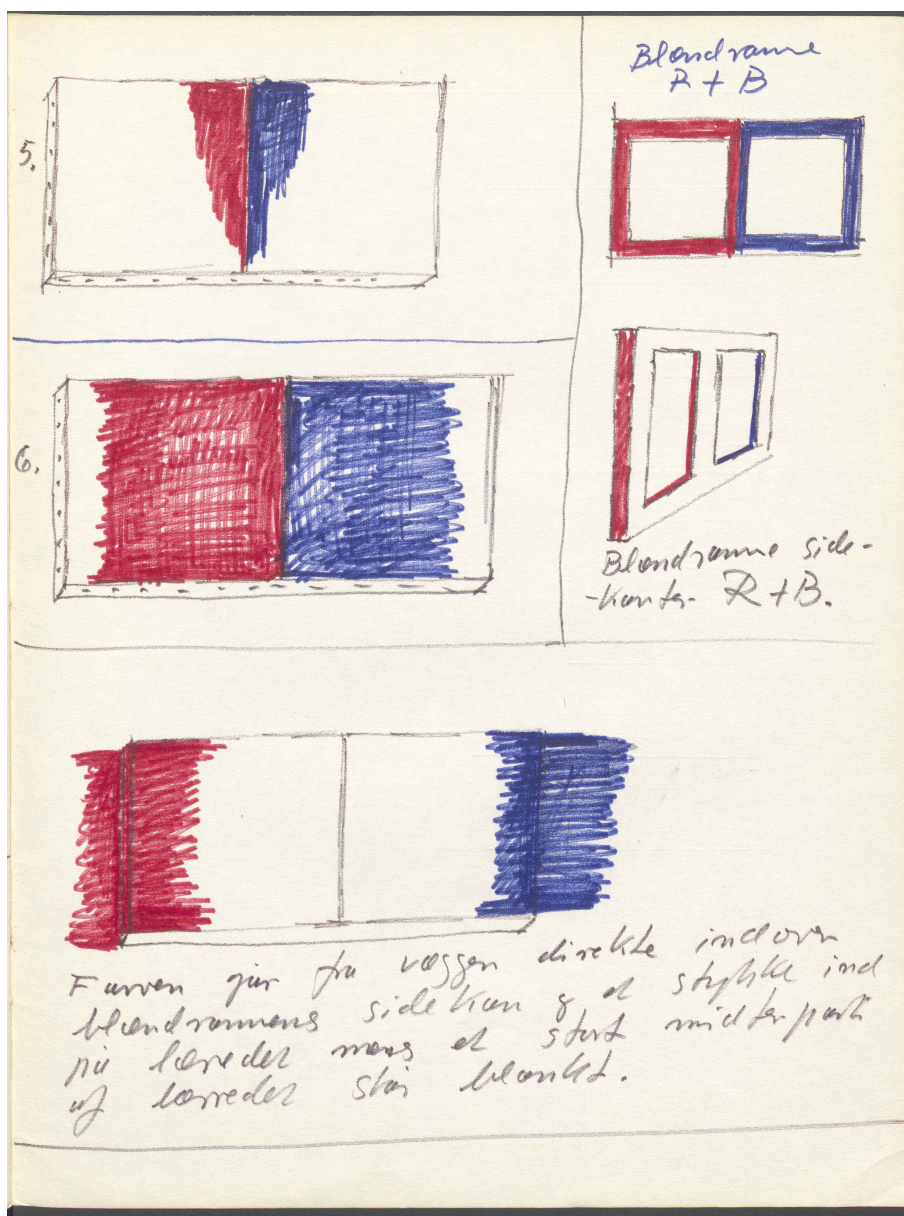 5.
Blendramme
R + B
6.
Blendramme side-
-kanter R + B.
Farven går fra væggen direkte indover
blendrammens sidekan & et stykke ind
på læredet mens et stort midterparti
af lærredet står blankt.